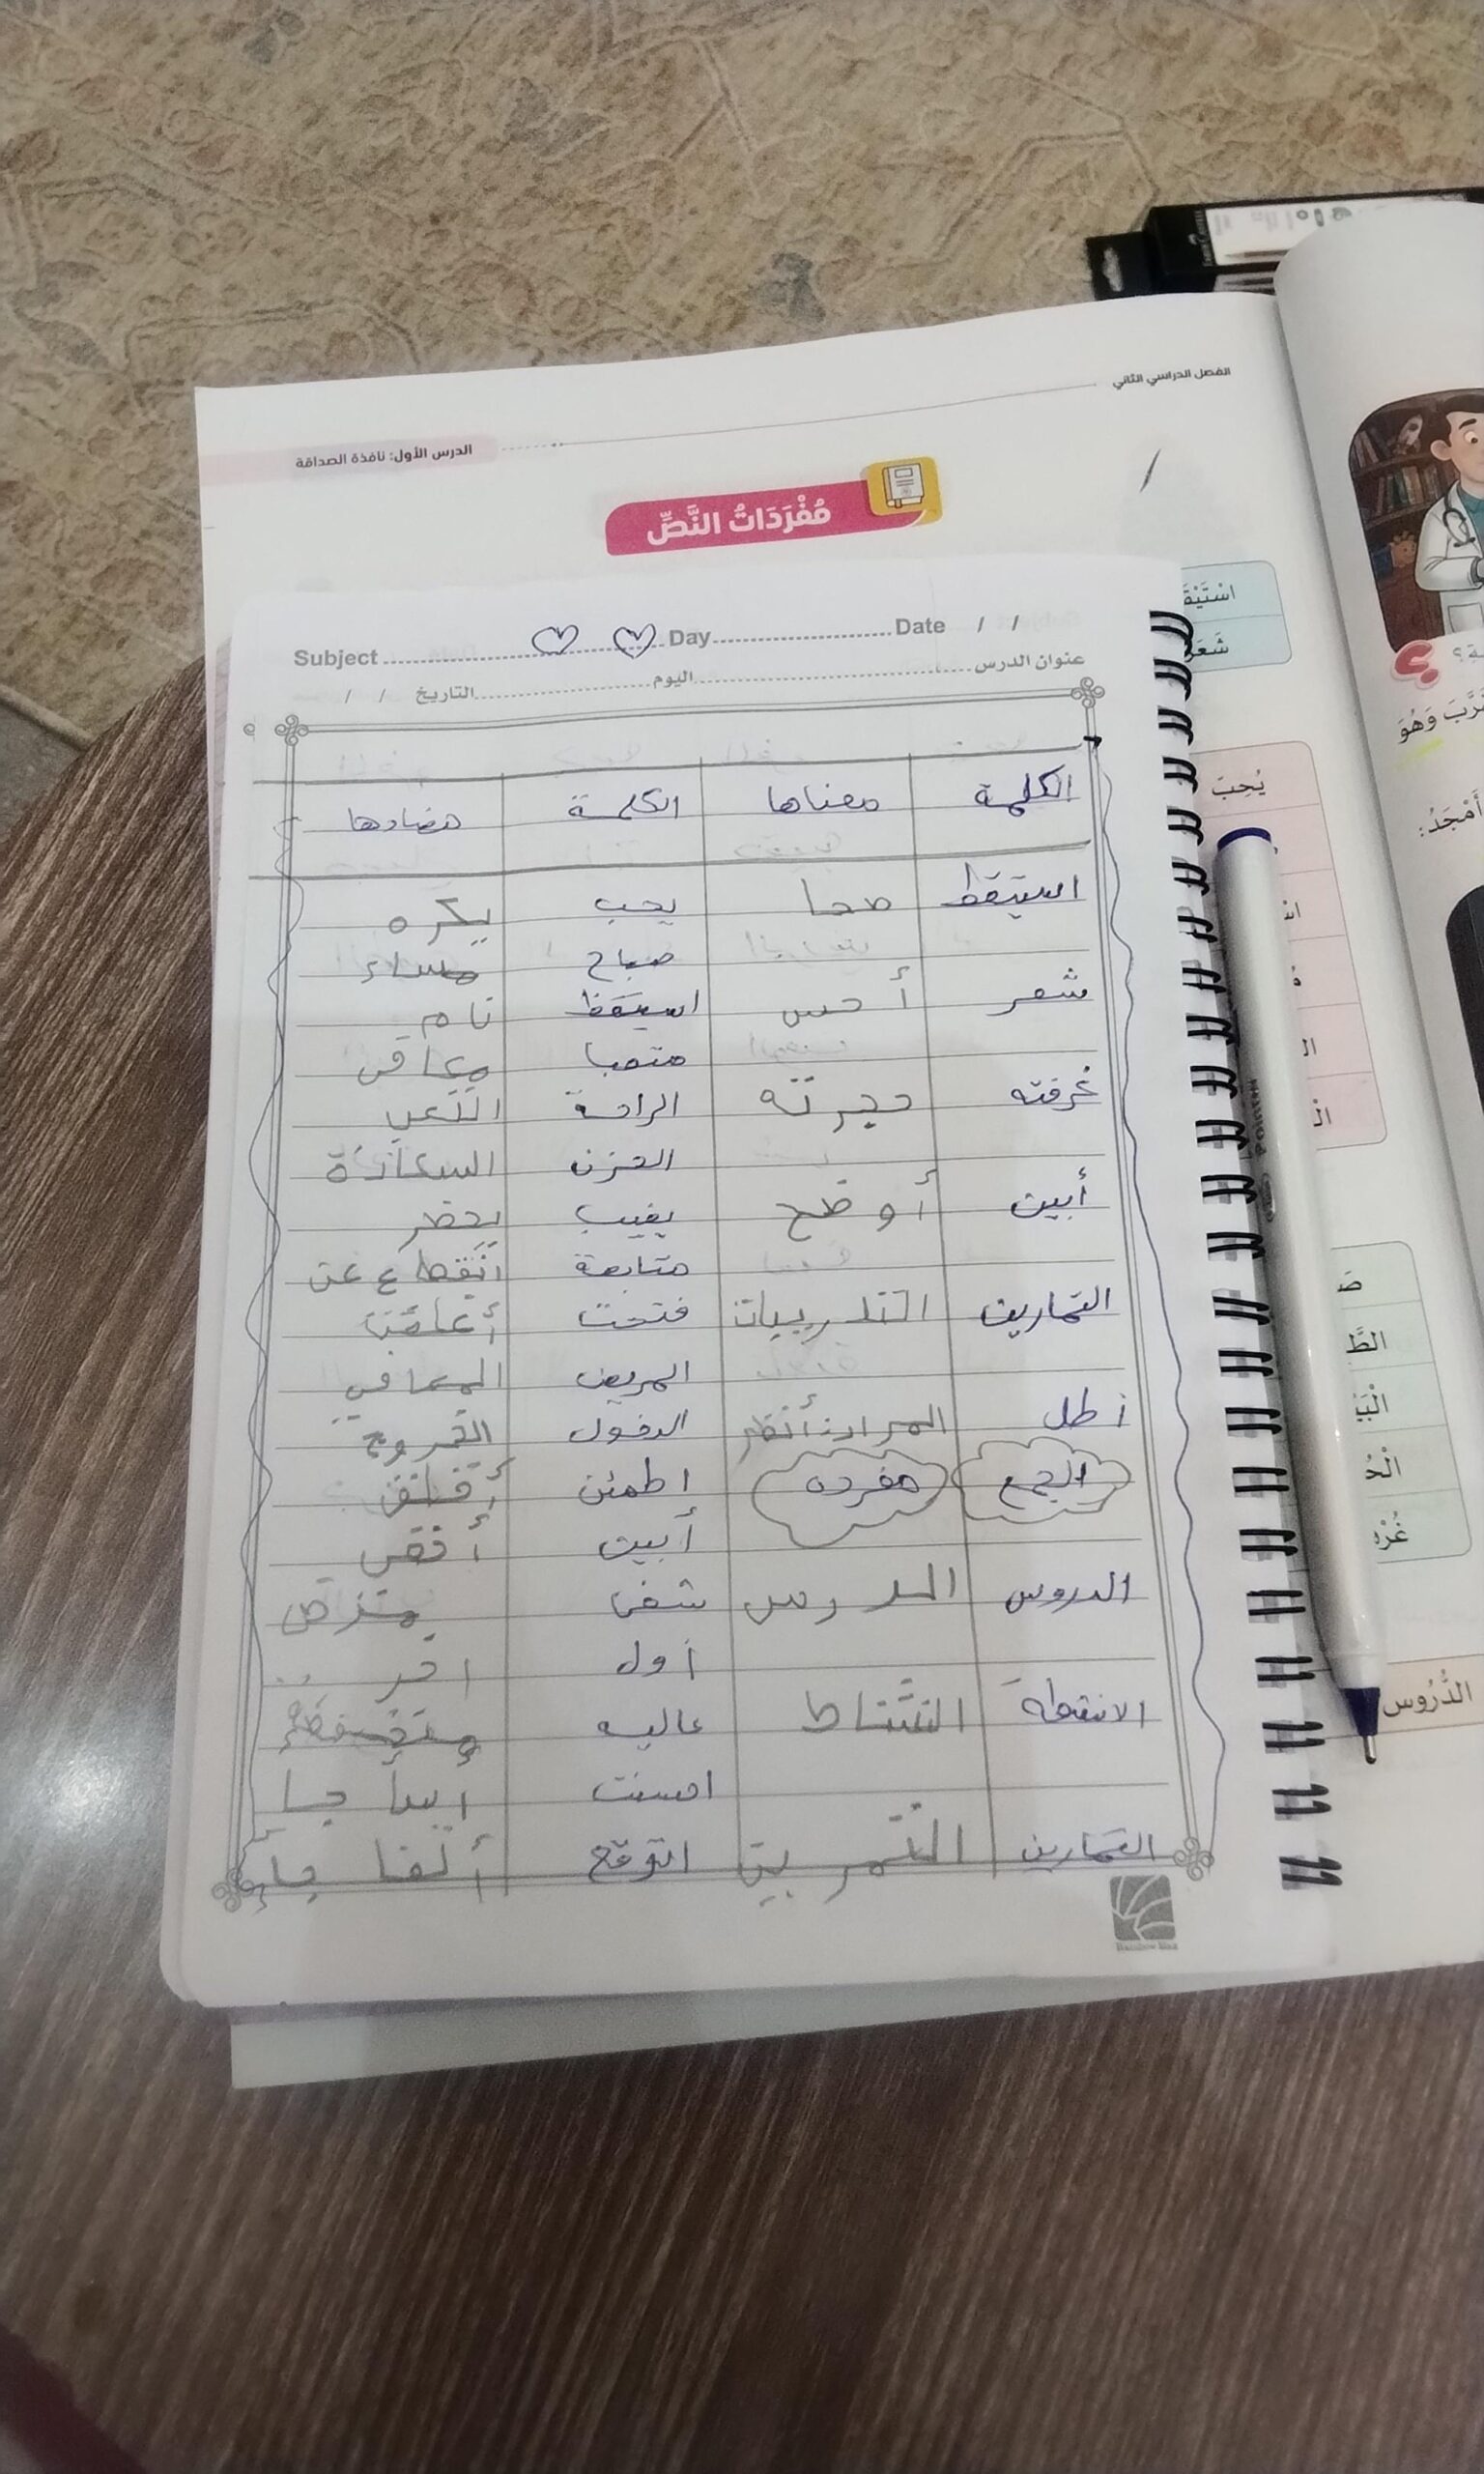 الفصل الدراسي الثاني
الدرس الأول: نافذة الصداقة
مُفْرَدَاتُ النَّصِّ
Subject Day Date / /
عنوان الدرس اليوم التاريخ / /
الكلمة معناها الكلمة مضادها
استيقظ صحا يحب يكره
صباح مساء
شعر أحس استيقظ نام
متعبا معافى
غرفته حجرته الراحة التعب
الحزن السعادة
أبين أوضح يغيب يحضر
متابعة انقطاع عن
التمارين التدريبات فتحت أغلقت
المريض المعافى
أطل المراد: أنظر الدخول الخروج
الجمع مفرده اطمئن أقلق
أبين أخفي
الدروس الدرس شفى
أول اخر
الانشطة النشاط عالية
احسنت
التمارين التمرين اتوقع
اسْتَيْقَ
شَعَرَ
يُحِبّ
صَ
غُرْ
الدُّرُوس
رَّبَ وَهُوَ
أَمْجَدُ: